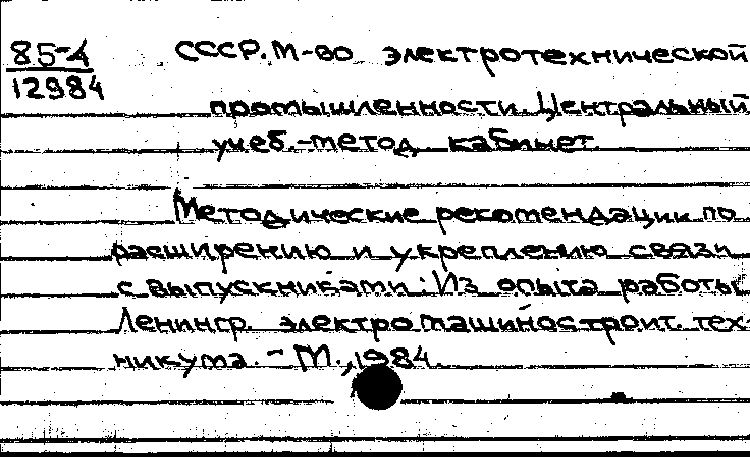 85-4
12984
СССР. М-во электротехнической
промышленности. Центральный
учеб.-метод. кабинет.
Методические рекомендации по
расширению и укреплению связи
с выпускниками: Из опыта работы
Ленингр. электромашиностроит. тех-
никума. - М., 1984.